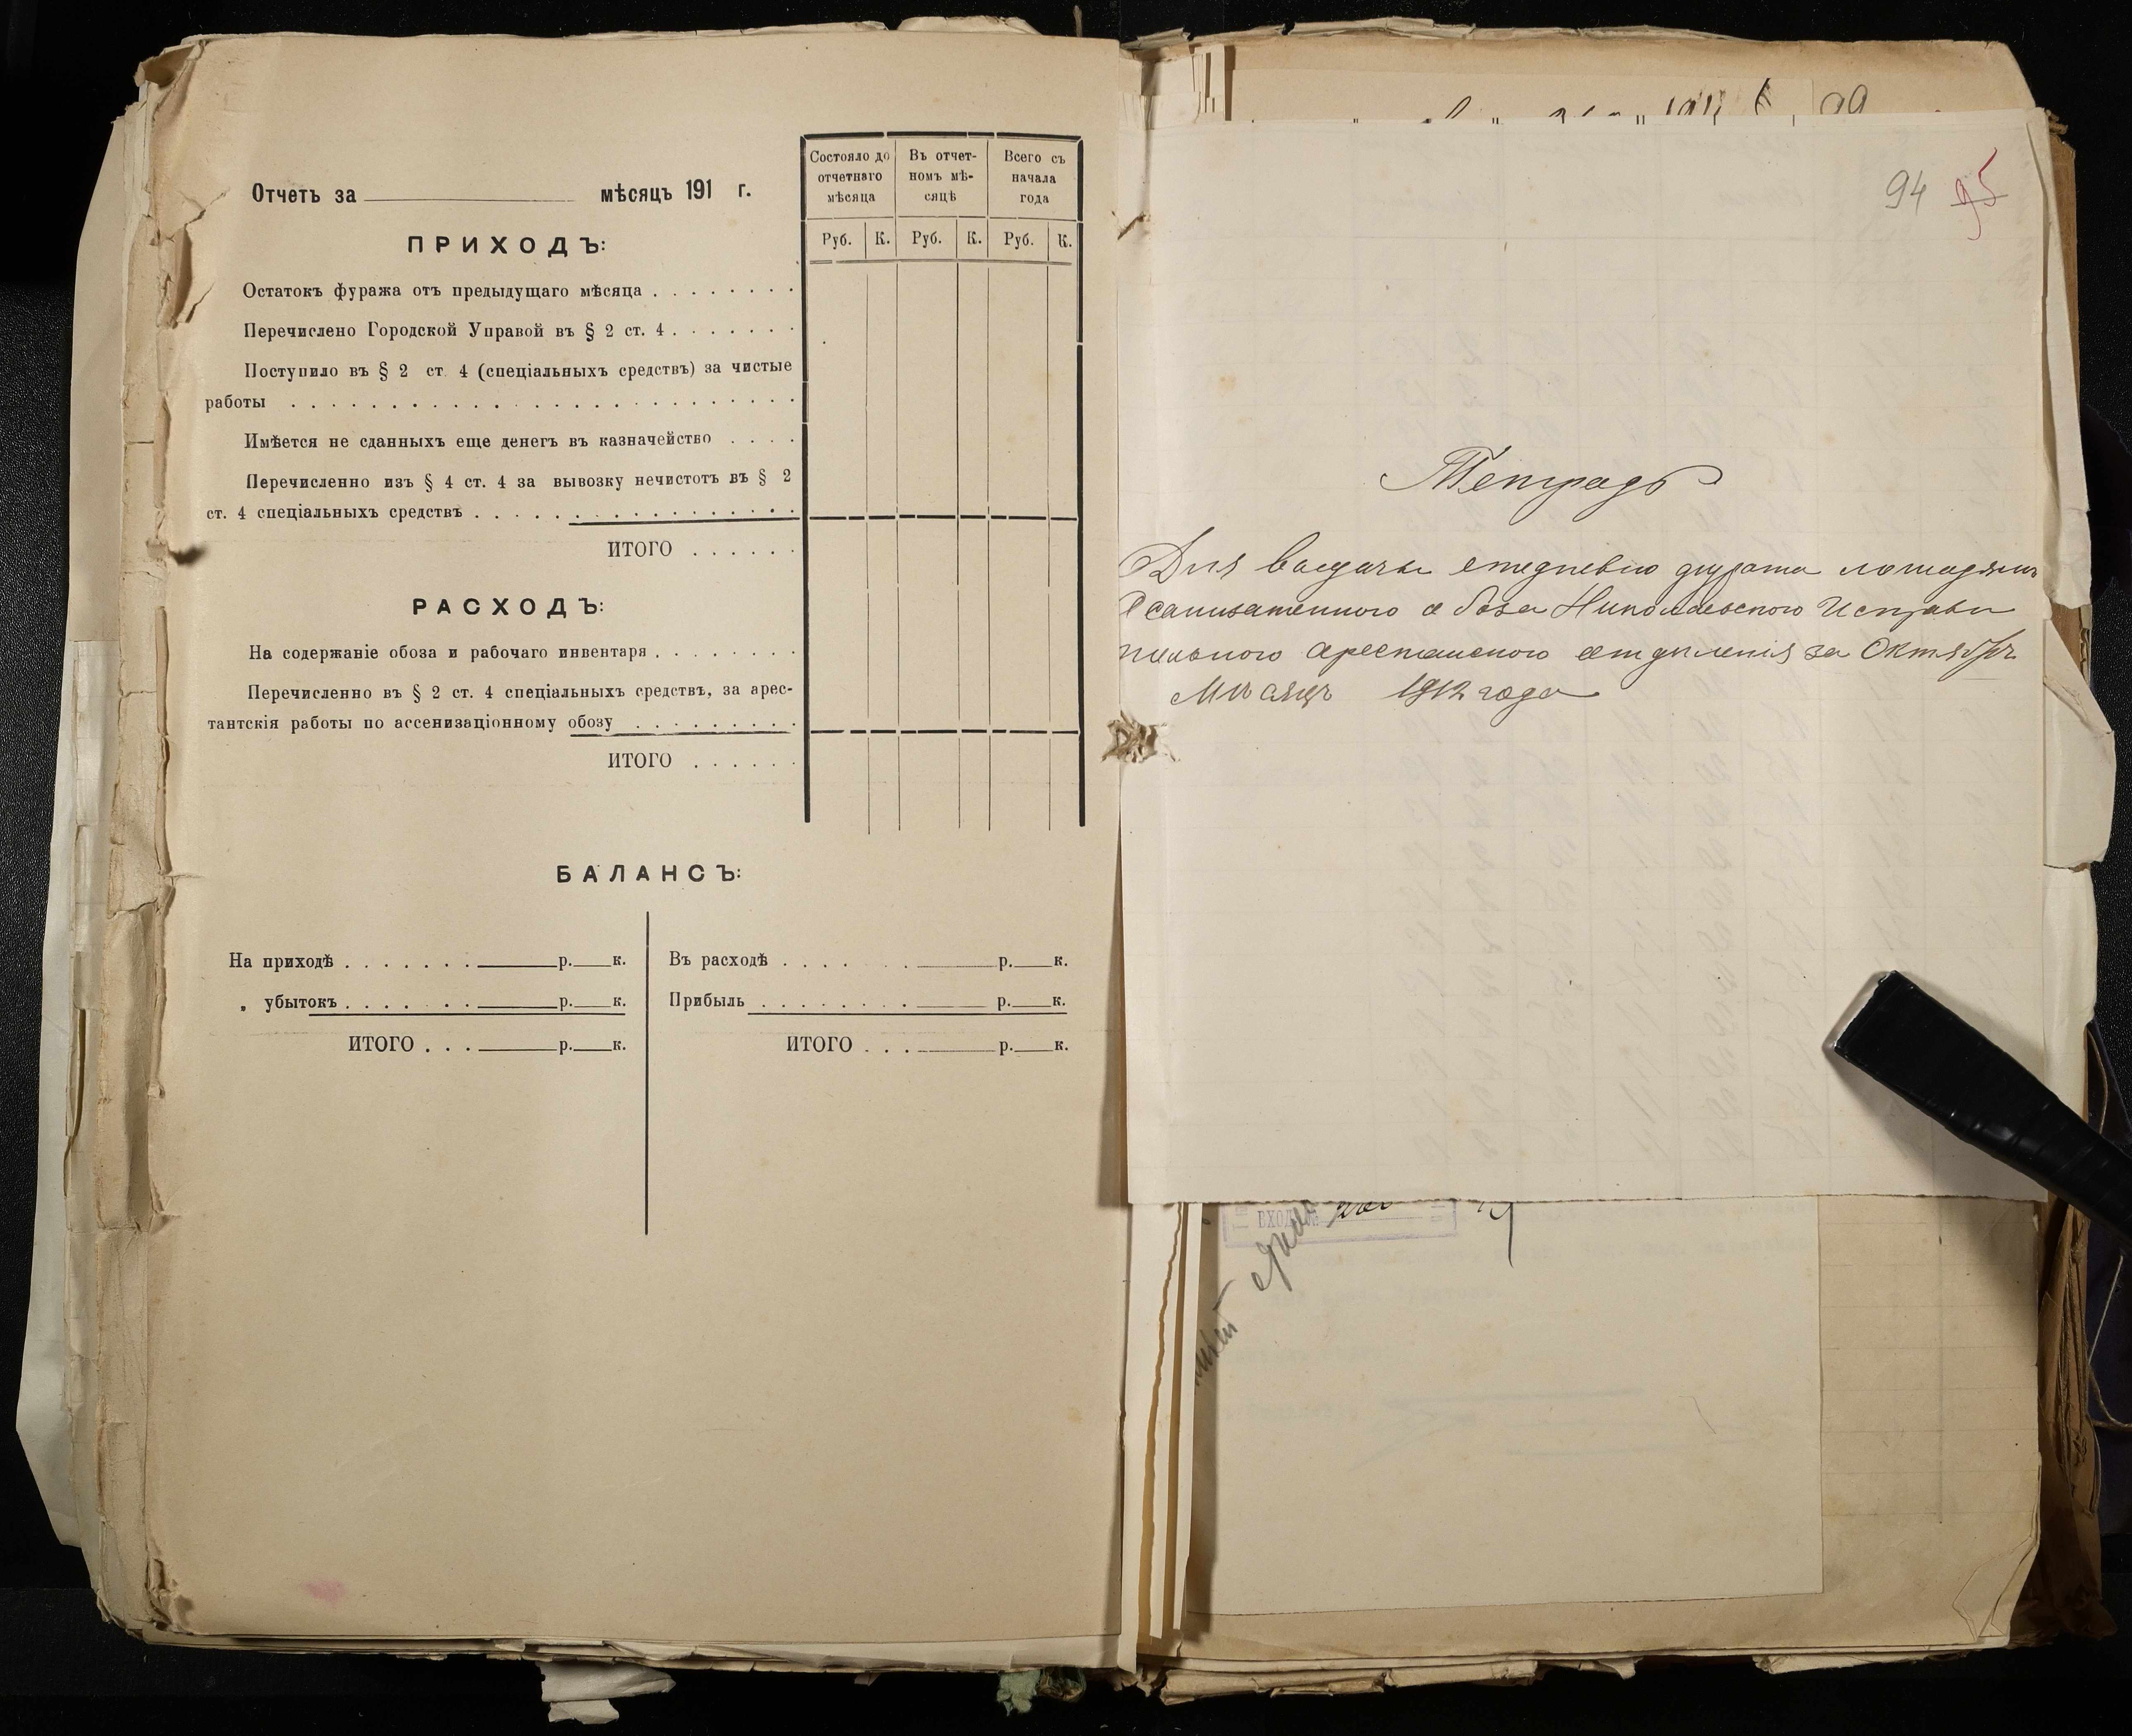 Отчетъ за мѣсяцъ 191 г.
Состояло до отчетнаго мѣсяца
Въ отчет-номъ мѣ-сяцѣ
Всего съ начала года
Руб. К. Руб. К. Руб. К.
ПРИХОДЪ:
Остатокъ фуража отъ предыдущаго мѣсяца . . . . . . . .
Перечислено Городской Управой въ § 2 ст. 4 . . . . . . .
Поступило въ § 2 ст. 4 (спеціальныхъ средствъ) за чистые
работы . . . . . . . . . . . . . . . . . . . . . . . . . .
Имѣется не сданныхъ еще денегъ въ казначейство . . . .
Перечисленно изъ § 4 ст. 4 за вывозку нечистотъ въ § 2
ст. 4 спеціальныхъ средствъ . . . . . . . . . . . . . . . .
ИТОГО . . . . . .
РАСХОДЪ:
На содержаніе обоза и рабочаго инвентаря . . . . . . . .
Перечисленно въ § 2 ст. 4 спеціальныхъ средствъ, за арес-
тантскія работы по ассенизаціонному обозу . . . . . . . . .
ИТОГО . . . . . .
БАЛАНСЪ:
На приходѣ . . . . . . . р. к.
„ убытокъ . . . . . . . р. к.
ИТОГО . . . р. к.
Въ расходѣ . . . . . . . р. к.
Прибыль . . . . . . . . р. к.
ИТОГО . . . р. к.
94 95
Тетрадь
Для выдачы ежедневно фуража лошадямъ
Ассанизатенного обоза Николаевского Исправи
тельного арестанского отдѣленія за Октябрь
Мѣсяцъ 1912 года
ВХОД